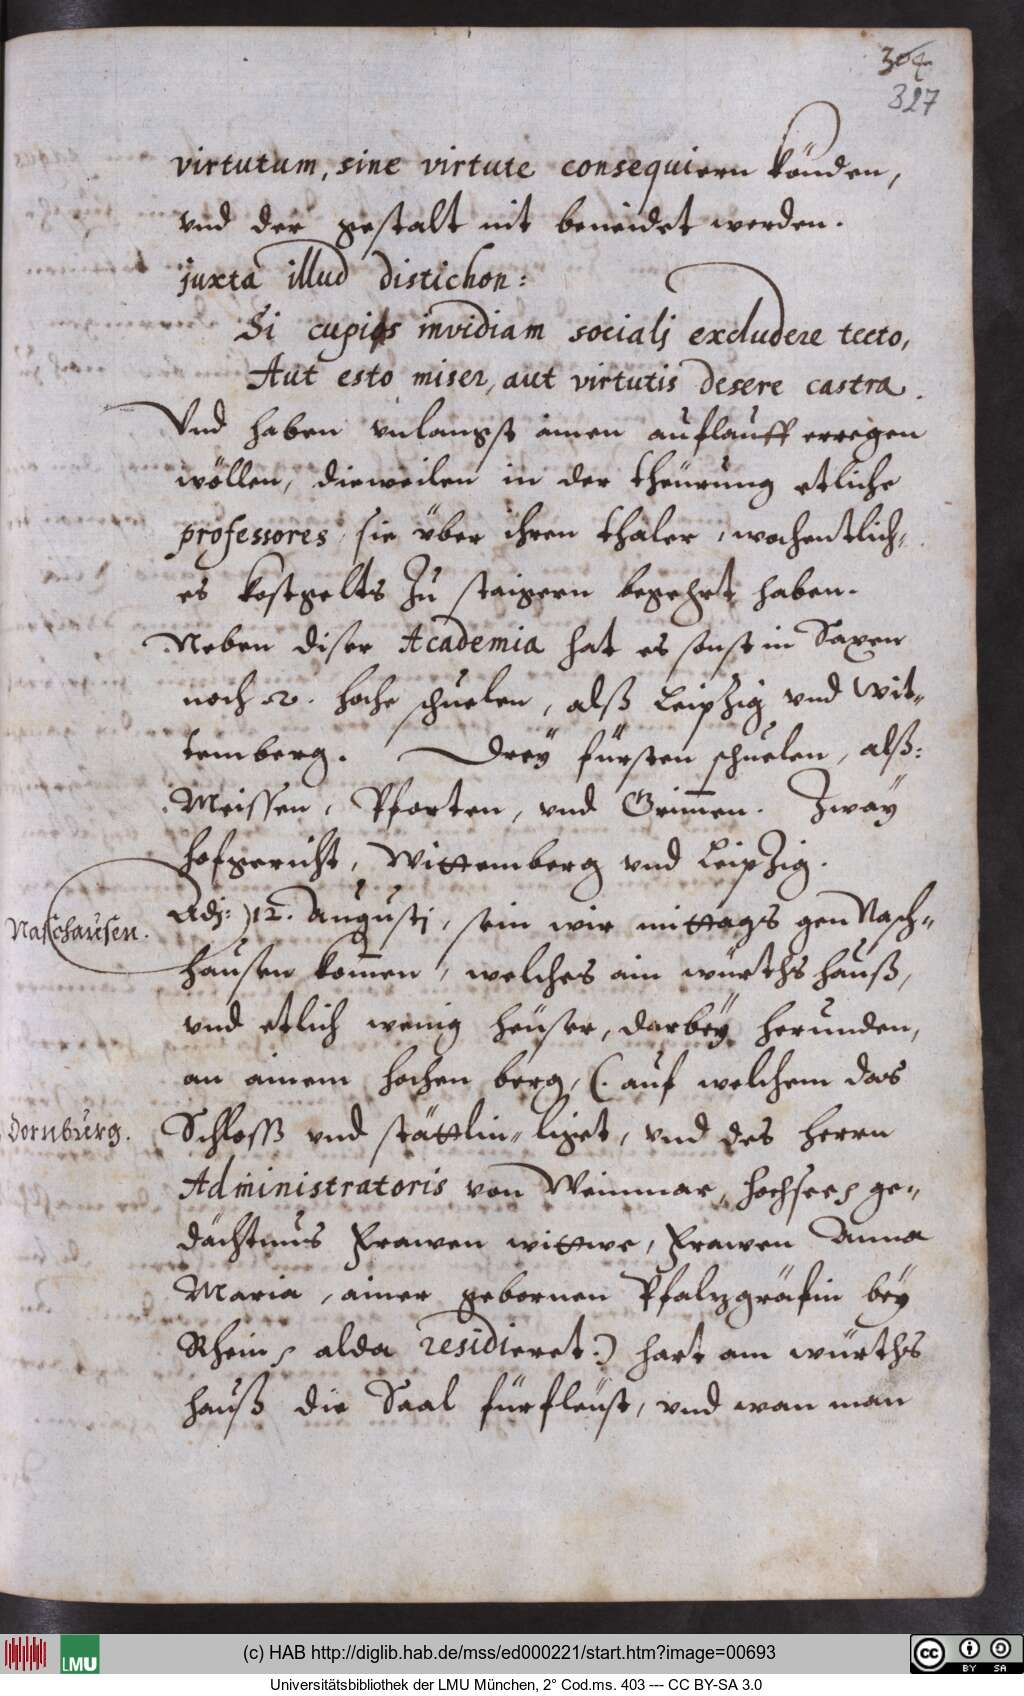 304
327
virtutum, sine virtute consequiern könden,
vnd der gestalt nit beneidet werden.
juxta illud distichon:
Si cupias invidiam socialj excludere tecto,
Aut esto miser, aut virtutis desere castra.
Vnd haben vnlangst ainen auflauff erregen
wöllen, dieweilen in der theürung etliche
professores sie über ihren thaler, wochentlich-
es kostgelts zu staigern begehrt haben.
Neben diser Academia hat es sonst in Saxen
noch 2. hoche schuelen, alß Leipzig vnd Wit-
temberg. Dreÿ fürsten schuelen, alß:
Meissen, Pforten, vnd Grim̄en. Zwaÿ
hofgericht, Wittemberg vnd Leipzig.
Naschausen.
Adj: 12. Augustj, sein wir mittags gen Nasch-
hausen kom̄en, welches ain würths hauß,
vnd etlich wenig heüser, darbeÿ herunden,
an ainem hochen berg, (. auf welchem das
Dornburg.
Schloß vnd stättlin ligt, vnd des herrn
Administratoris von Weinmar, hochsee: ge-
dächtnus Frawen wittwe, Frawen Anna
Maria, ainer gebornen Pfalzgräfin beÿ
Rhein, alda residieret:) hart am würths
hauß die Saal fürfleüst, vnd wan man
(c) HAB http://diglib.hab.de/mss/ed000221/start.htm?image=00693
LMU
cc BY SA
Universitätsbibliothek der LMU München, 2° Cod.ms. 403 --- CC BY-SA 3.0